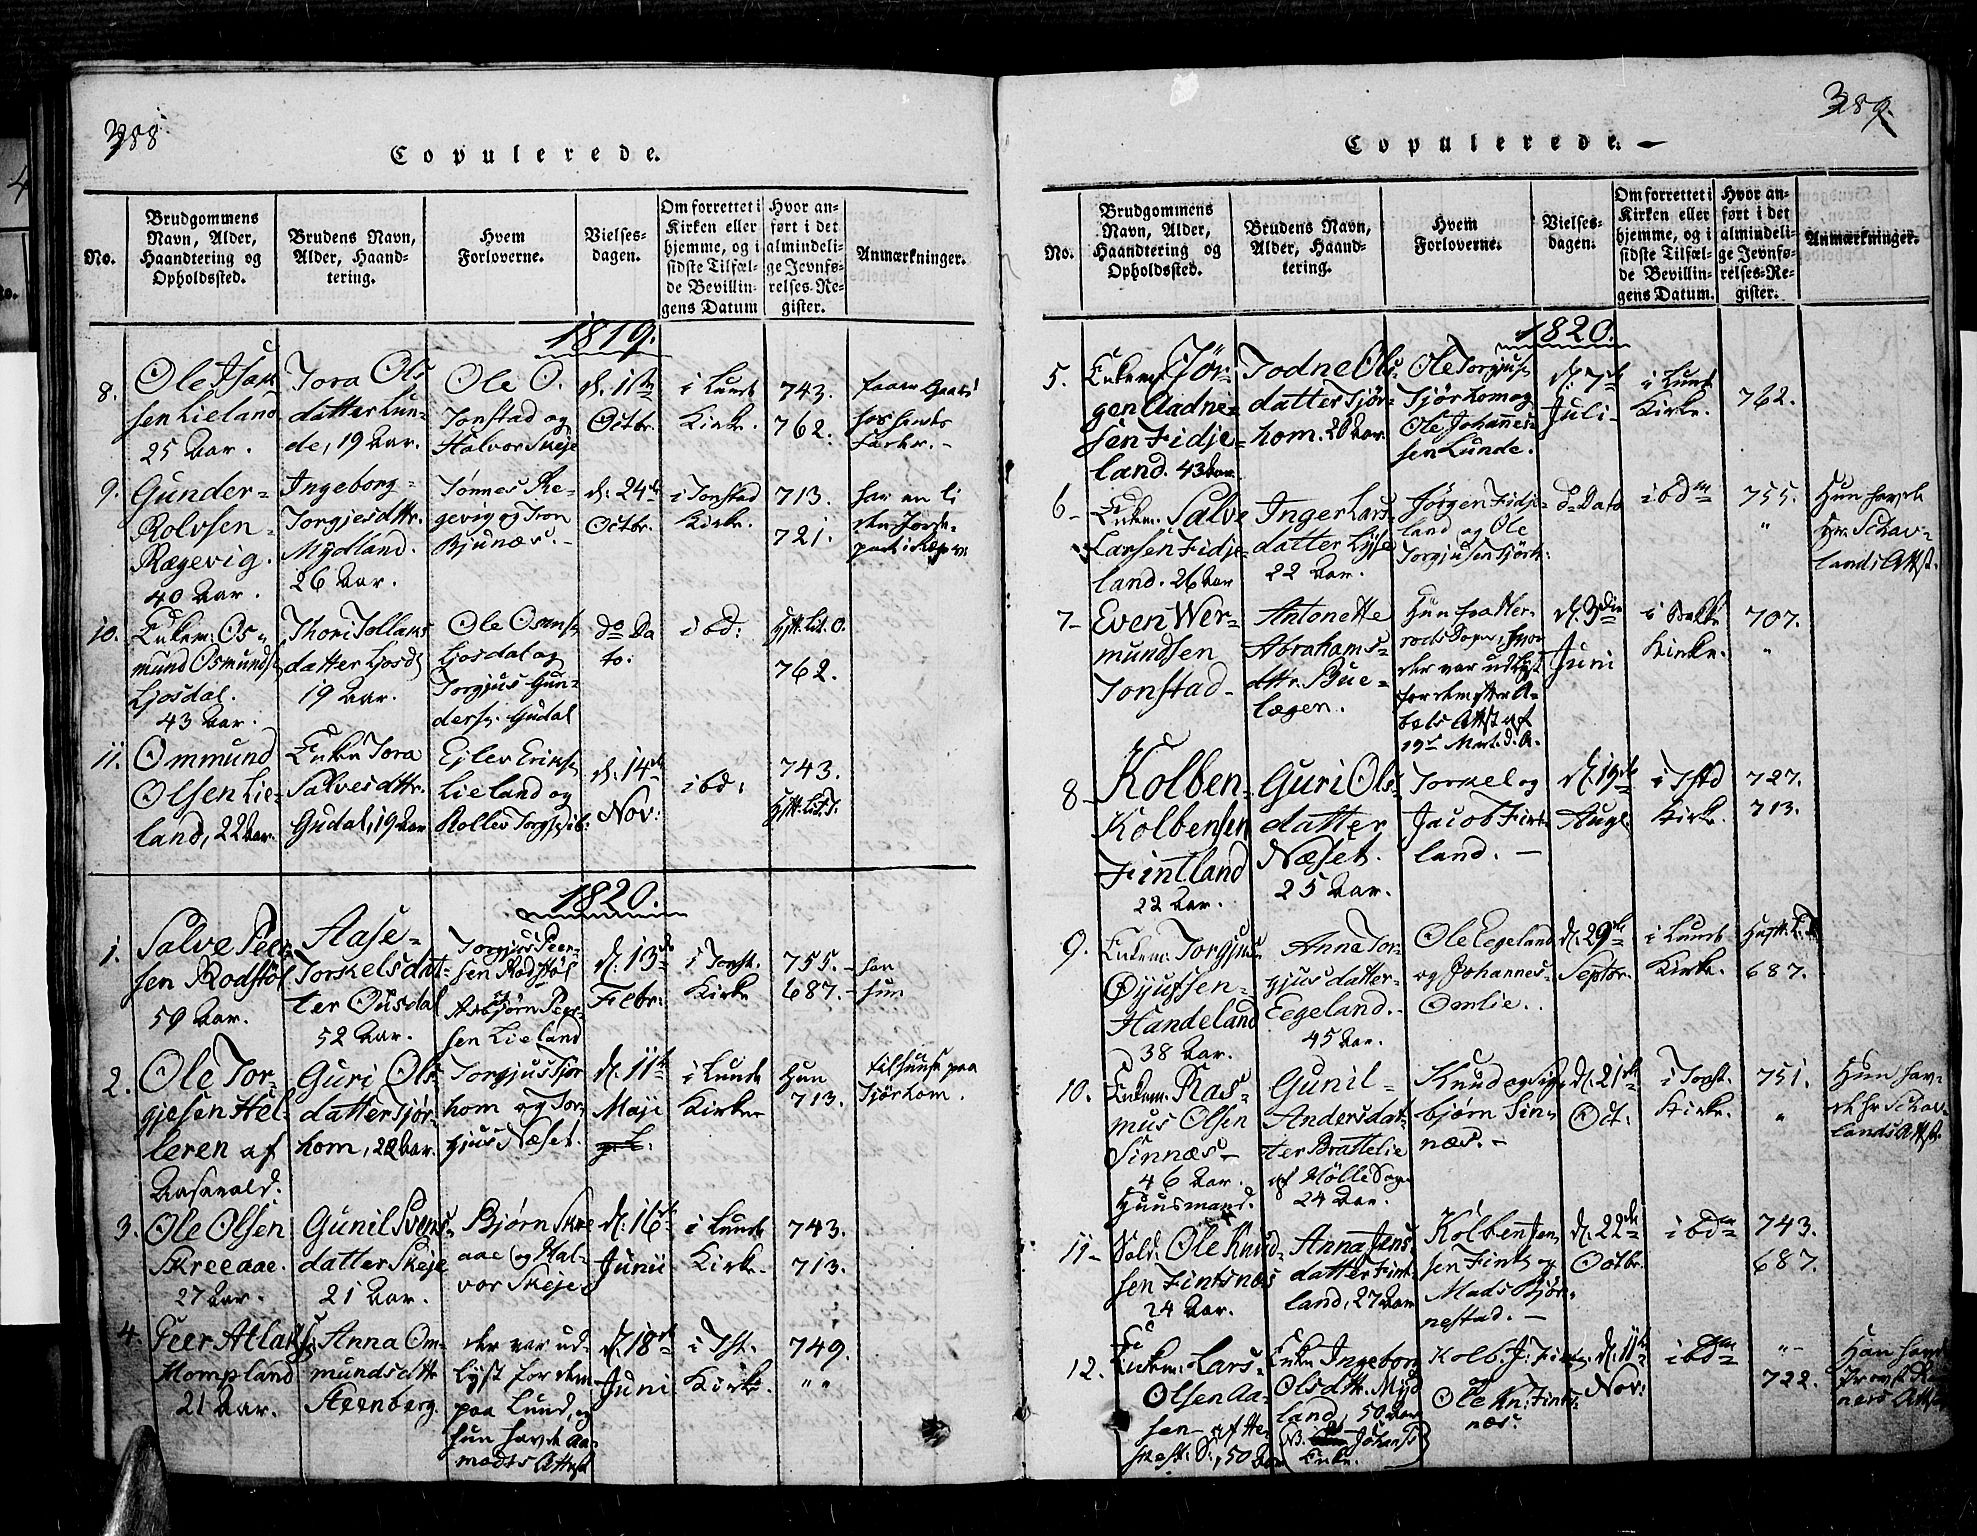 388
Copulerede.
No.
Brudgommens
Navn, Alder,
Haandtering og
Opholdssted.
Brudens Navn,
Alder, Haand-
tering.
Hvem
Forloverne.
Vielses-
dagen.
Om forrettet i
Kirken eller
hjemme, og i
sidste Tilfæl-
de Bevillin-
gens Datum
Hvor an-
ført i det
almindeli-
ge Jevnfø-
relses-Re-
gister.
Anmærkninger.
1819.
8.
Ole
sen Lieland
25 Aar.
Tora Ols
datter Lun-
de, 19 Aar.
Ole O.
Tonstad og
Halvor Skeje
d. 1ste
Octbr.
i Lunds
Kirke.
743.
762.
9.
Gunder
Rolvsen
Rægevig.
40 Aar.
Ingeborg
Torgjesdttr.
Mydland.
26 Aar.
Tønnes Re-
gevig og Tron
Bjunæs.
d. 24de
Octbr.
i Tonstad
Kirke.
713.
721.
10.
Enkem: Os-
mund Osmunds
Ljosdal.
43 Aar.
Thori Tollaks
datter Ljosd
19 Aar.
Ole Osmunds
Ljosdal og
Torgjus Gun-
ders: Gudal
do Da
to:
ibd:
762.
11.
Ommund
Olsen Lie-
land, 22 Aar.
Enke Tora
Salvesdttr.
Gudal, 19 Aar
Ejlev Eriks
Lieland og
Rollev
d. 14de
Nov:
ibd:
743.
1820.
1.
Salve Peer-
sen Rodstøl
59 Aar.
Aase
Torkelsdat-
ter Ousdal
52 Aar.
Torgjus Peer-
sen Rodstøl
og
Asbjørn Peer-
sen Lieland
d. 13de
Febr:
i Tonst.
Kirke
755.
687.
han
hun
2.
Ole Tor-
gjesen Hel-
leren af
Aaserald.
Guri Ols
datter Tjør-
hom, 22 Aar.
Torgjus Tjør
hom og Tor-
gjus Næset.
d. 11te
Maji
i Lunds
Kirke
Hun
713.
til huuse paa
Tjørhom.
3.
Ole Olsen
Skreeaae.
27 Aar.
Gunil Svens-
datter Skeje
21 Aar.
Bjørn Skre
aae og Hal-
vor Skeje
d. 16de
Junii
i Lunds
Kirke.
743.
713.
4.
Peer Atlaks:
Hompland
21 Aar.
Anna Om-
mundsdttr
Steenberg.
der var ud-
lyst for dem
paa Lund, og
hun havde Aa-
modts Attest
d. 18de
Juni
i Tst.
Kirke.
749.
" "
389.
Copulerede.
No.
Brudgommens
Navn, Alder,
Haandtering og
Opholdssted.
Brudens Navn,
Alder, Haand-
tering.
Hvem
Forloverne.
Vielses-
dagen.
Om forrettet i
Kirken eller
hjemme, og i
sidste Tilfæl-
de Bevillin-
gens Datum.
Hvor an-
ført i det
almindeli-
ge Jevnfø-
relses-Re-
gister.
Anmærkninger.
1820.
5.
Enkem: Jør-
gen Aadne-
sen Fidje-
land. 43 Aar
Todne Ols-
datter Tjør-
hom. 20 Aar
Ole Torgjus
Tjørhom og
Ole Johannes-
sen Lunde.
d. 7de
Juli
i Lunds
Kirke.
762.
6
Enkem: Salve
Larsen Fidje-
land. 26 Aar
Inger Lars-
datter Lyse
22 Aar.
Jørgen Fidje-
land og Ole
Torgjusen Tjørh:
do Dato
ibdm
755.
"
Hun havde
Hr. Schav-
lands Attst.
7
Even Wer-
mundsen
Tonstad
Antonette
Abrahams-
dttr. Bue-
lægen.
Hun fra Her-
rods Sogn, hvor
der var udlyst
for dem efter A-
bels Attst af
19de Marts d. A.
d. 3die
Juni
i Bakke
Kirke.
707.
"
8
Kolben
Kolbensen
Fintland
22 Aar.
Guri Ols-
datter
Næset.
25 Aar.
Torkel og
Jacob Fint-
land.
d. 19de
Augs.
i Tstd
Kirke.
727.
713.
9.
Enkem: Torgjus
Handeland
38 Aar.
Anna Tor-
gjusdatter
Eegeland.
45 Aar.
Ole Eegeland
og Johannes
Omlie.
d. 29de
Septbr.
i Lunds
Kirke.
687.
10.
Enkem: Ras-
mus Olsen
Sinnæs
46 Aar.
Huusmand.
Gunil
Andersdat-
ter Brattelie
af Hølle Sogn
24 Aar.
Knud og Sig-
bjørn Sin-
næs.
d. 21de
Oct.
i Tonst.
Kirke.
751.
"
Hun hav-
de Hr Schav-
lands Attst.
11
Sold: Ole Knud
sen Fintsnæs
24 Aar.
Anna Jens
datter Fint-
land, 27 Aar
Kolben Jen-
sen Fintl: og
Mads Bjør-
nestad.
d. 22de
Octbr.
i bdm
743.
687.
12.
Enkem: Lars
Olsen Aa-
sen af He-
skest: S:, 50 Aar
Enke Ingeborg
Olsdttr. Myd
land, 50 Aar
(NB. Johans
Enke.)
Kolb: J: Fintl:
og
Ole Kn: Fints-
næs.
d. 11te
Nov:
i bdm
" -
722.
Han havde